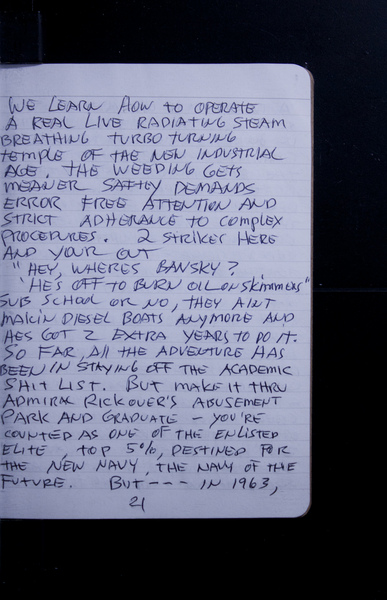 WE LEARN HOW TO OPERATE
A REAL LIVE RADIATING STEAM
BREATHING TURBO TURNING
TEMPLE OF THE NEW INDUSTRIAL
AGE. THE WEEDING GETS
MEANER SAFTEY DEMANDS
ERROR FREE ATTENTION AND
STRICT ADHERANCE TO COMPLEX
PROCEDURES. 2 STRIKES HERE
AND YOUR OUT
"HEY, WHERES BANSKY?
"HE'S OFF TO BURN OIL ON SKIMMERS"
SUB SCHOOL OR NO, THEY AINT
MAKIN DIESEL BOATS ANYMORE AND
HES GOT 2 EXTRA YEARS TO DO IT.
SO FAR, All THE ADVENTURE HAS
BEEN IN STAYING OFF THE ACADEMIC
SHIT LIST. BUT MAKE IT THRU
ADMIRAL RICKOVER'S ABUSEMENT
PARK AND GRADUATE - YOU'RE
COUNTED AS ONE OF THE ENLISTED
ELITE, TOP 5%, DESTINED FOR
THE NEW NAVY, THE NAVY OF THE
FUTURE. BUT --- IN 1963,
21